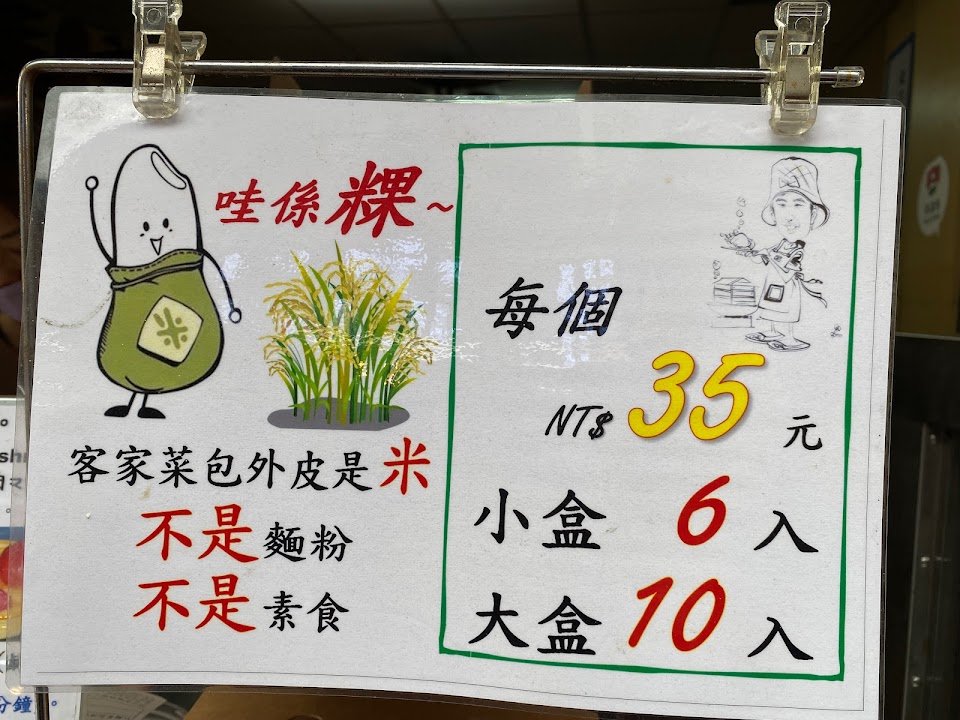 哇係粿~
米
客家菜包外皮是米
不是麵粉
不是素食
每個
NT$ 35 元
小盒 6 入
大盒 10 入
分鐘。